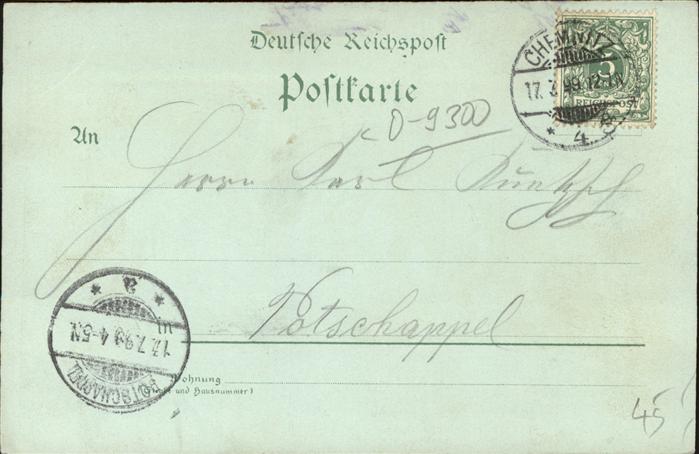 Deutsche Reichspost
Postkarte
CHEMNITZ
5
17.7.99.12-1N
REICHSPOST
* 4.
D-9300
An
Herrn Karl
Potschappel
* a *
17.7.99 4-5N.
POTSCHAPPEL
Wohnung
(Straße und Hausnummer)
45